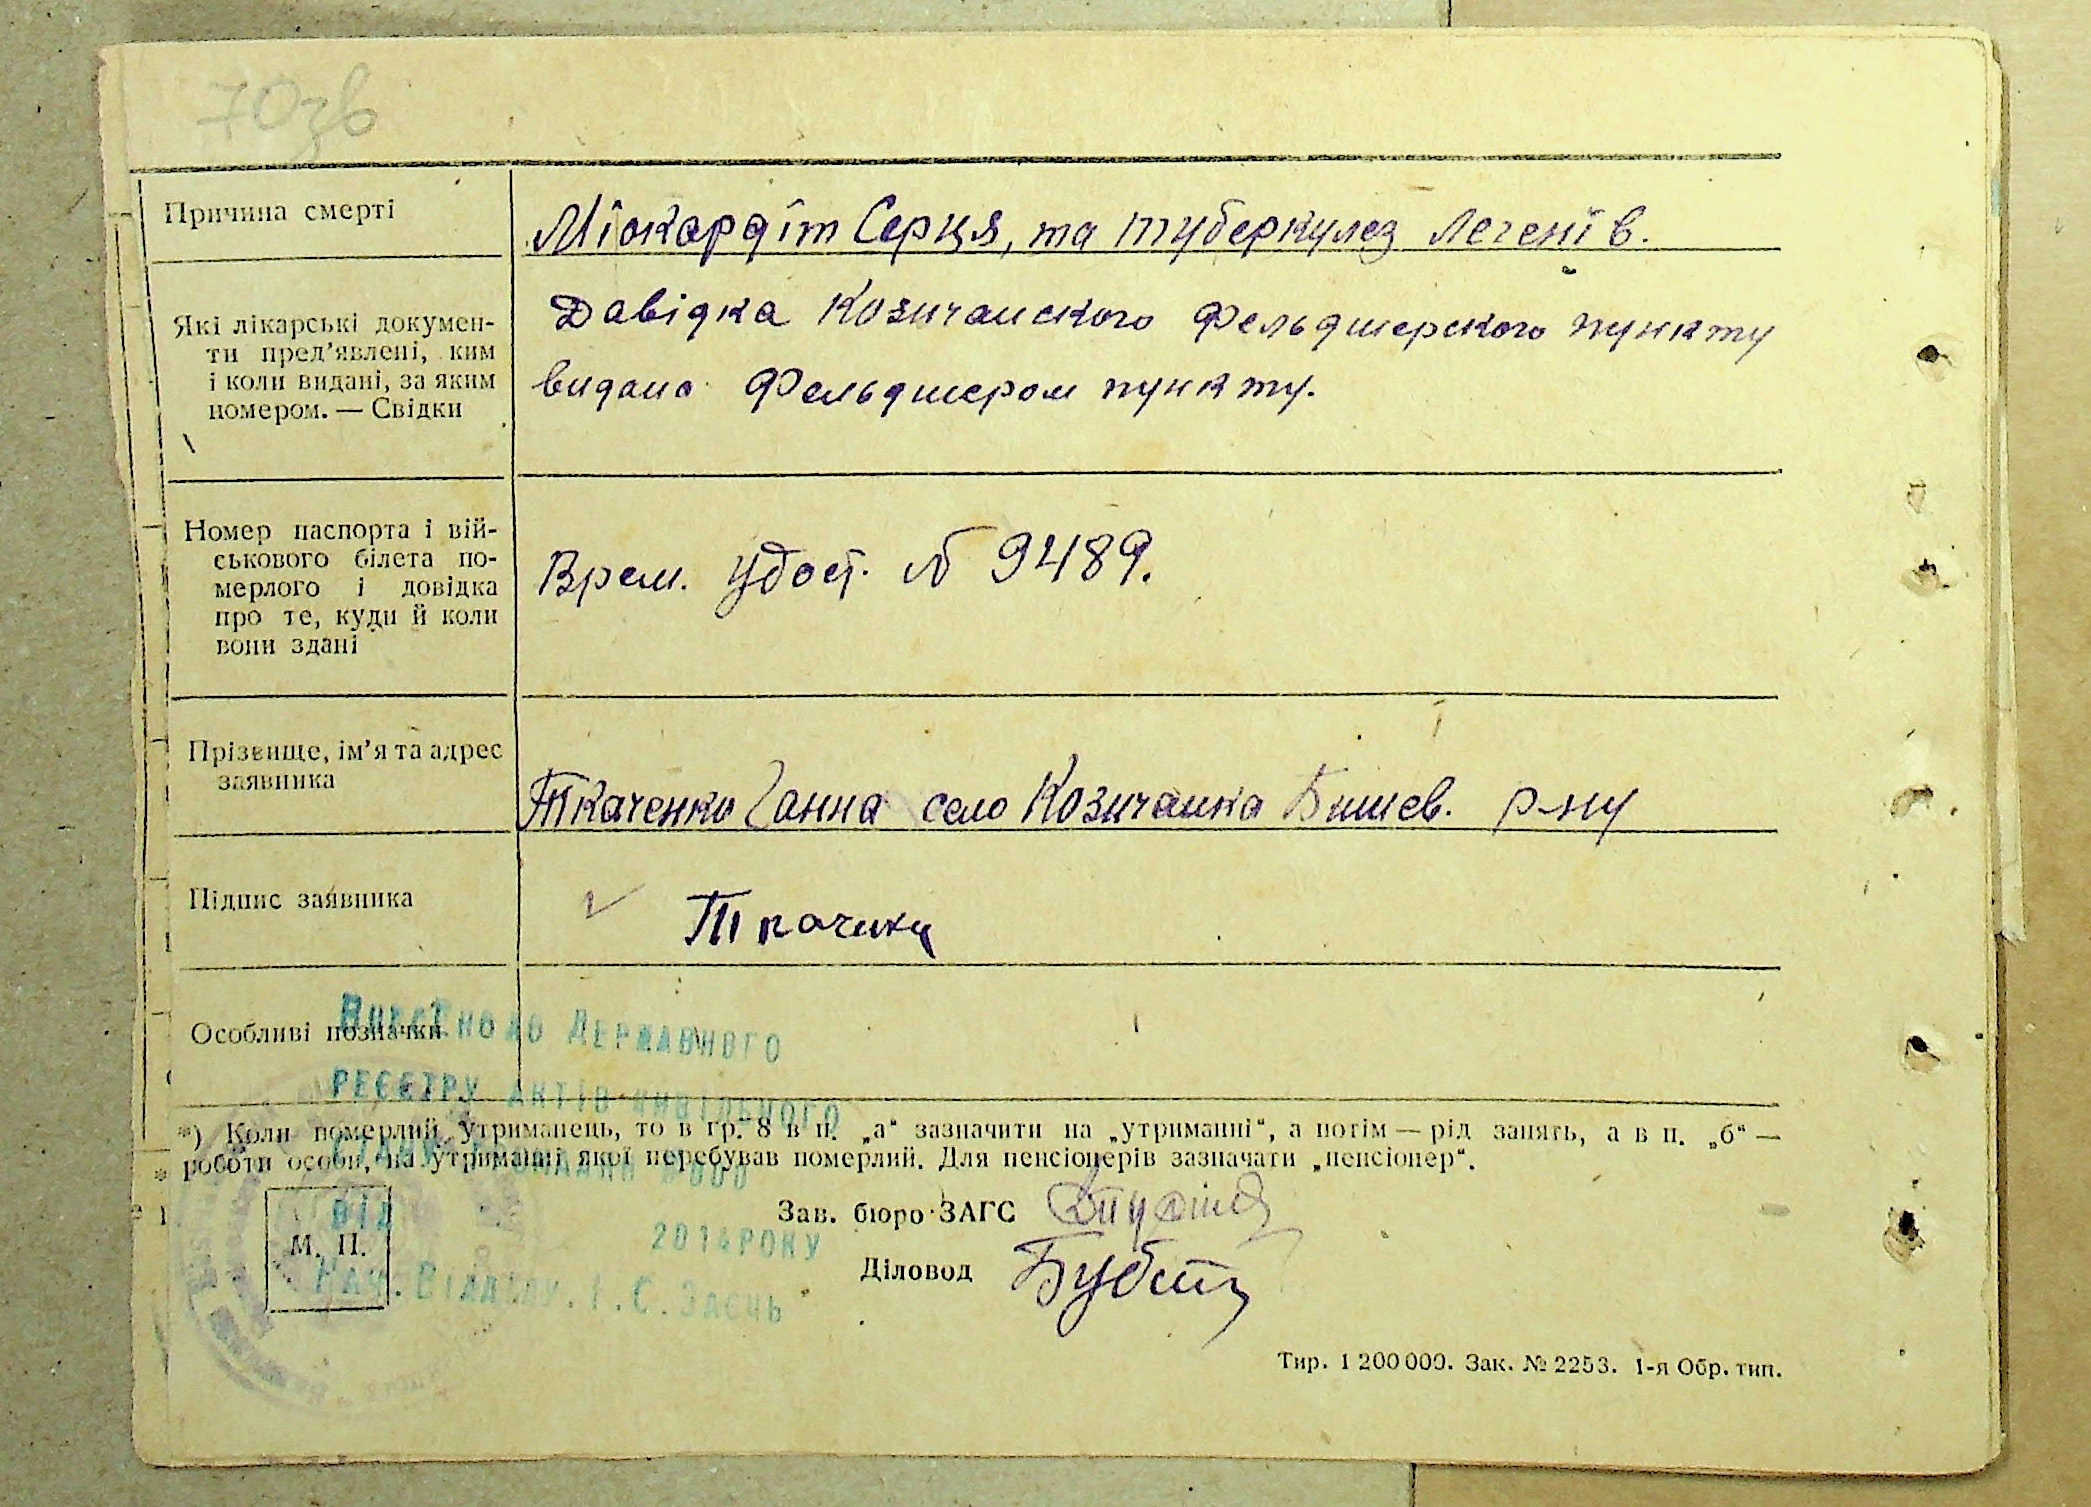 70зв
Причина смерті
Міокардіт Серця, та туберкулез Легенїв.
Які лікарські докумен-
ти пред'явлені, ким
і коли видані, за яким
номером. — Свідки
Давідка Козичанского Фельдшерского пункту
видана Фельдшером пункту.
Номер паспорта і вій-
ськового білета по-
мерлого і довідка
про те, куди й коли
вони здані
Врем. удост. № 9489.
Прізвище, ім'я та адрес
заявника
Ткаченко Ганна село Козичанка Бишев. р-ну
Підпис заявника
Особливі позначки
Внесено до Державного
реєстру актів цивільного
*) Коли померлий утриманець, то в гр. 8 в п. „а“ зазначити на „утриманні“, а потім — рід занять, а в п. „б“ —
роботи особи, на утриманні якої перебував померлий. Для пенсіонерів зазначати „пенсіонер“.
Зав. бюро ЗАГС
від
2014 року
М. П.
Діловод
Нач. Відділу. І. С. Заєць
Тир. 1 200 000. Зак. № 2253. 1-я Обр. тип.